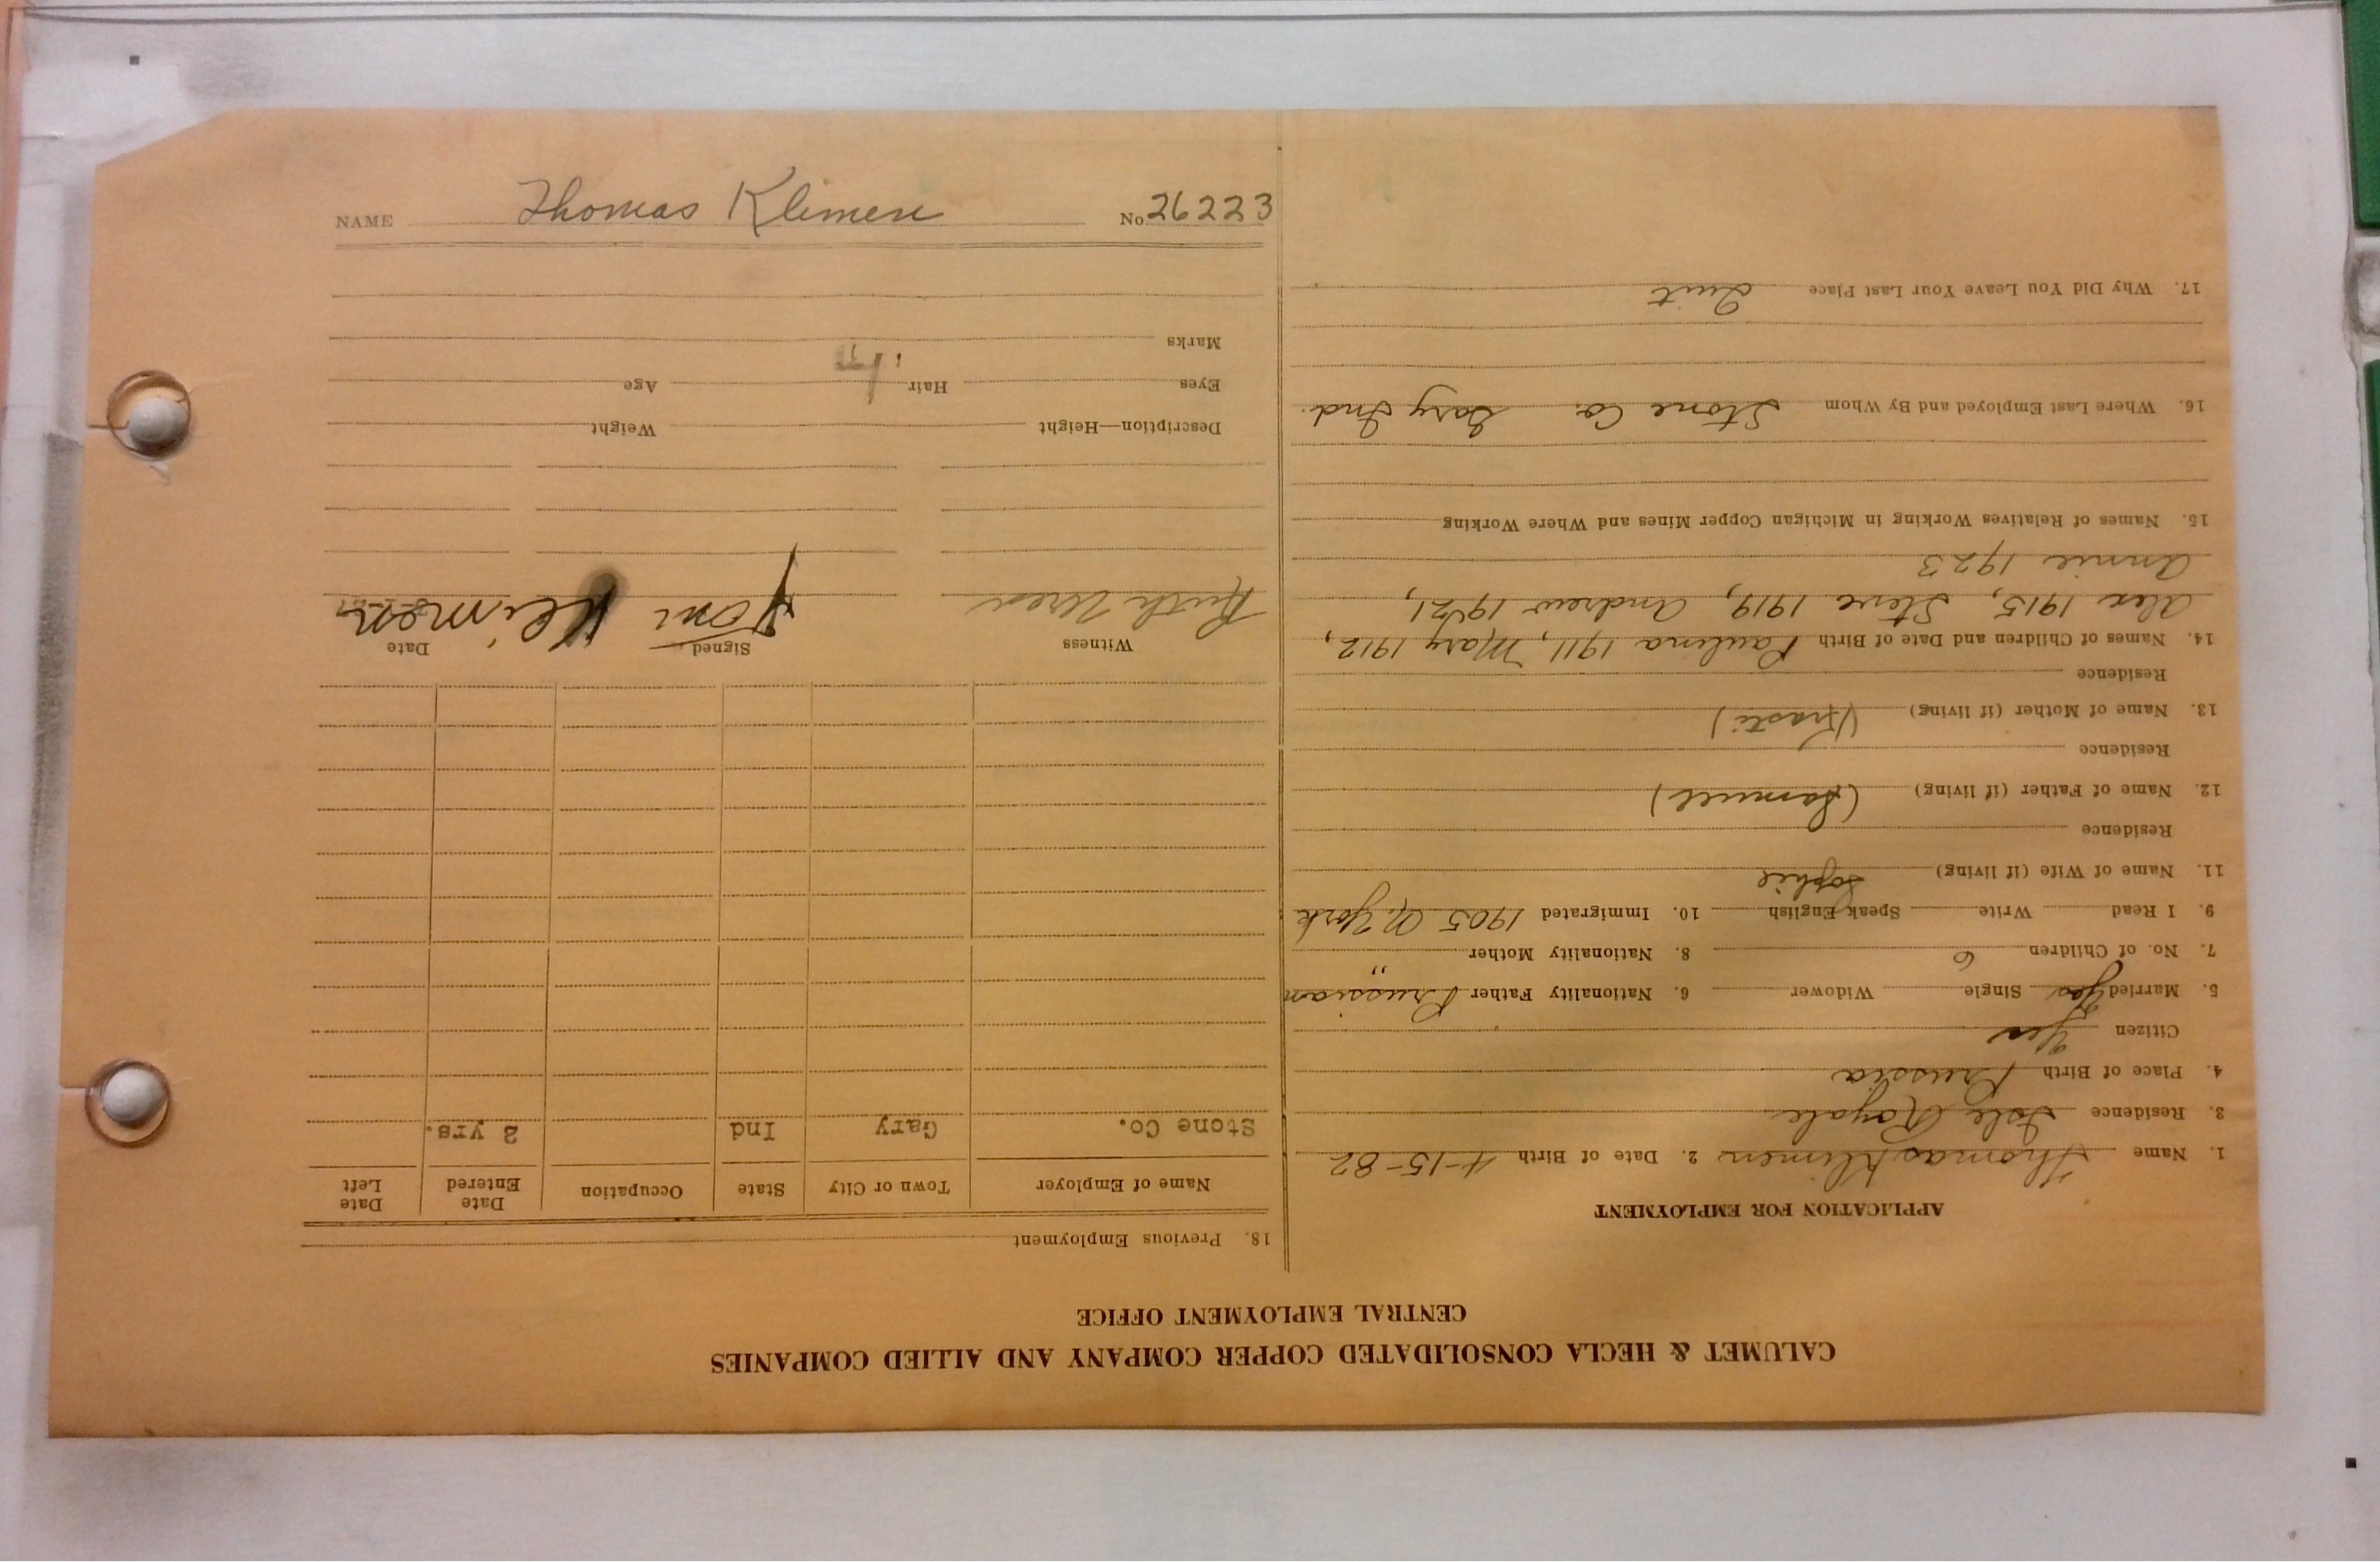 CALUMET & HECLA CONSOLIDATED COPPER COMPANY AND ALLIED COMPANIES
CENTRAL EMPLOYMENT OFFICE
APPLICATION FOR EMPLOYMENT
1. Name Thomas Klimen 2. Date of Birth 4-15-82
3. Residence Isle Royale
4. Place of Birth Prussia
Citizen Yes
5. Married Yes Single Widower 6. Nationality Father Prussian
7. No. of Children 6 8. Nationality Mother "
9. I Read Write Speak English 10. Immigrated 1905 N. York
11. Name of Wife (if living) Sophie
Residence
12. Name of Father (if living) (Samuel)
Residence
13. Name of Mother (if living)
Residence
14. Names of Children and Date of Birth Paulina 1911, Mary 1912,
Alex 1915, Steve 1919, Andrew 1921,
Annie 1923
15. Names of Relatives Working in Michigan Copper Mines and Where Working
16. Where Last Employed and By Whom Stone Co. Gary Ind.
17. Why Did You Leave Your Last Place Quit
18. Previous Employment
Name of Employer Town or City State Occupation Date Entered Date Left
Stone Co. Gary Ind 3 yrs.
Witness Signed Date
Ruth Tom Klimen
Description—Height Weight
Eyes Hair Age
Marks
NAME Thomas Klimen No. 26223